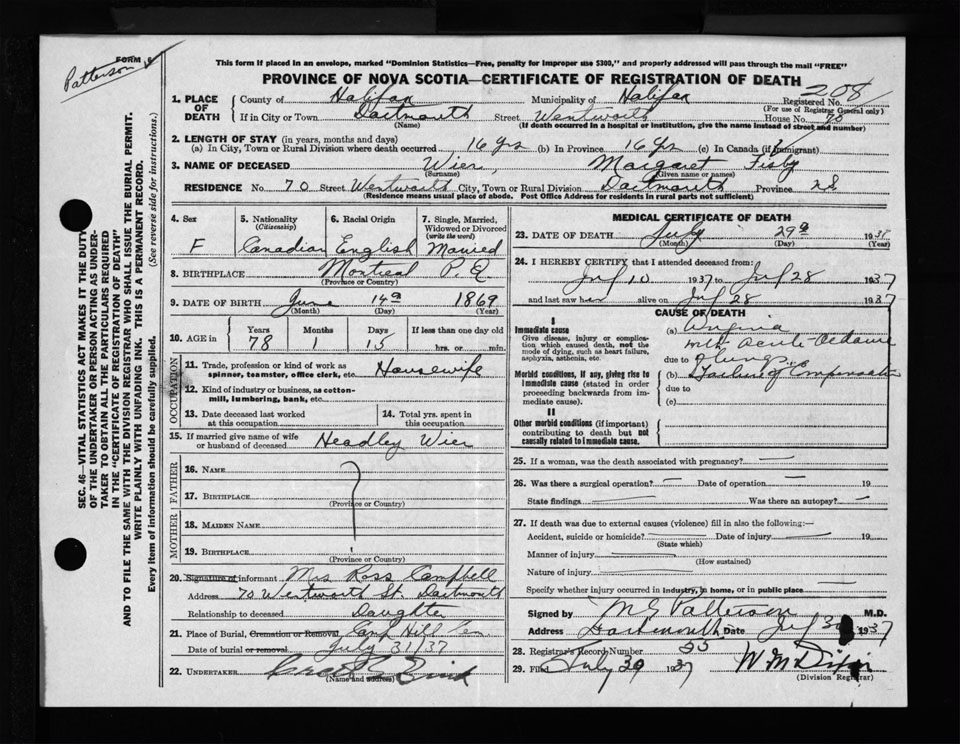 Patterson
FORM
This form if placed in an envelope, marked "Dominion Statistics—Free, penalty for improper use $300," and properly addressed will pass through the mail "FREE"
PROVINCE OF NOVA SCOTIA—CERTIFICATE OF REGISTRATION OF DEATH
SEC. 46—VITAL STATISTICS ACT MAKES IT THE DUTY
OF THE UNDERTAKER OR PERSON ACTING AS UNDER-
TAKER TO OBTAIN ALL THE PARTICULARS REQUIRED
IN THE "CERTIFICATE OF REGISTRATION OF DEATH"
AND TO FILE THE SAME WITH THE DIVISION REGISTRAR WHO SHALL ISSUE THE BURIAL PERMIT.
WRITE PLAINLY WITH UNFADING INK. THIS IS A PERMANENT RECORD.
Every item of information should be carefully supplied. (See reverse side for instructions.)
1. PLACE OF DEATH
County of Halifax Municipality of Halifax Registered No. 208
(For use of Registrar General only)
If in City or Town Dartmouth Street Wentworth House No. 70
(Name) (If death occurred in a hospital or institution, give the name instead of street and number)
2. LENGTH OF STAY (in years, months and days)
(a) In City, Town or Rural Division where death occurred 16 yrs (b) In Province 16 yrs (c) In Canada (if immigrant)
3. NAME OF DECEASED Wier, Margaret
(Surname) (Given name or names)
RESIDENCE No. 70 Street Wentworth City, Town or Rural Division Dartmouth Province N S
(Residence means usual place of abode. Post Office Address for residents in rural parts not sufficient)
4. Sex F
5. Nationality (Citizenship) Canadian
6. Racial Origin English
7. Single, Married, Widowed or Divorced (write the word) Married
8. BIRTHPLACE Montreal P. Q.
(Province or Country)
9. DATE OF BIRTH June 14th 1869
(Month) (Day) (Year)
10. AGE in Years 78 Months 1 Days 15 If less than one day old
hrs. or min.
OCCUPATION
11. Trade, profession or kind of work as
spinner, teamster, office clerk, etc. Housewife
12. Kind of industry or business, as cotton-
mill, lumbering, bank, etc.
13. Date deceased last worked
at this occupation
14. Total yrs. spent in
this occupation
15. If married give name of wife
or husband of deceased Headley Wier
FATHER
16. NAME ?
17. BIRTHPLACE
(Province or Country)
MOTHER
18. MAIDEN NAME
19. BIRTHPLACE
(Province or Country)
20. Signature of informant Mrs Ross Campbell
Address 70 Wentworth St. Dartmouth
Relationship to deceased Daughter
21. Place of Burial, Cremation or Removal Camp Hill Cem
Date of burial or removal July 31/37
22. UNDERTAKER
(Name and address)
MEDICAL CERTIFICATE OF DEATH
23. DATE OF DEATH July 29th 1937
(Month) (Day) (Year)
24. I HEREBY CERTIFY that I attended deceased from:
July 10 1937 to July 28 1937
and last saw her alive on July 28 1937
CAUSE OF DEATH
I
Immediate cause
Give disease, injury or complica-
tion which caused death, not the
mode of dying, such as heart failure,
asphyxia, asthenia, etc.
(a) Angina
with acute oedema
due to of lungs
Morbid conditions, if any, giving rise to
immediate cause (stated in order
proceeding backwards from im-
mediate cause).
(b) Failure of compensation
due to
(c)
II
Other morbid conditions (if important)
contributing to death but not
causally related to immediate cause.
25. If a woman, was the death associated with pregnancy? —
26. Was there a surgical operation? — Date of operation — 19
State findings — Was there an autopsy? —
27. If death was due to external causes (violence) fill in also the following:—
Accident, suicide or homicide? Date of injury 19
(State which)
Manner of injury
(How sustained)
Nature of injury
Specify whether injury occurred in industry, in home, or in public place
Signed by M G Patterson M.D.
Address Dartmouth Date July 1937
28. Registrar's Record Number
29. Filed July 30 1937 W M
(Division Registrar)